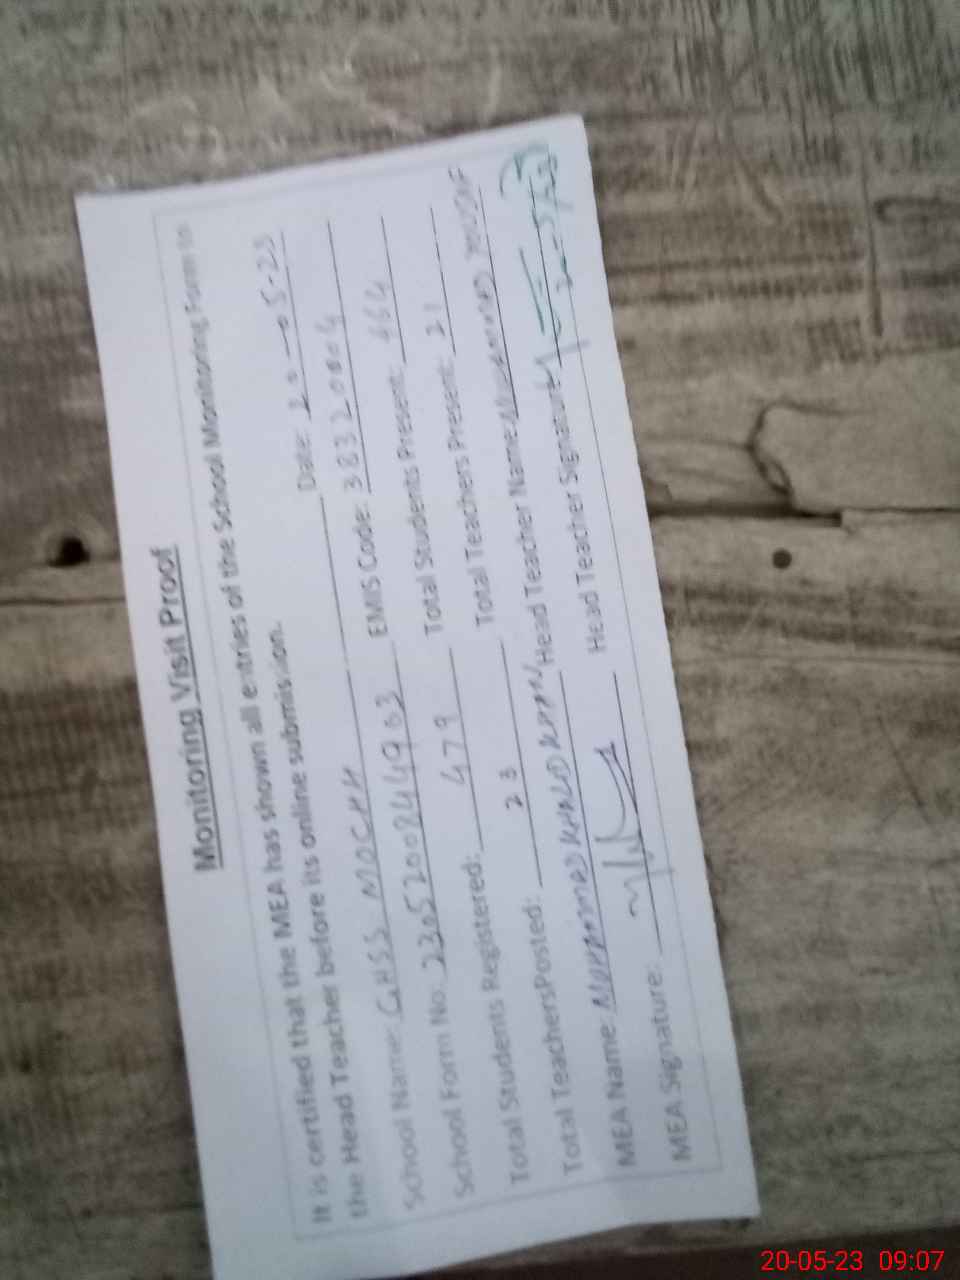 Monitoring Visit Proof
It is certified that the MEA has shown all entries of the School Monitoring Form to
the Head Teacher before its online submission.
Date: 20-05-23
School Name: GHSS MOCHH
School Form No: 2305200244963 EMIS Code: 38832000
Total Students Registered: 479 Total Students Present: 464
Total Teachers Posted: 23 Total Teachers Present: 21
MEA Name MUHAMMAD KHALID KHAN Head Teacher Name: MUHAMMAD YOUSAF
MEA Signature: Head Teacher Signature
20-5/23
20-05-23 09:07